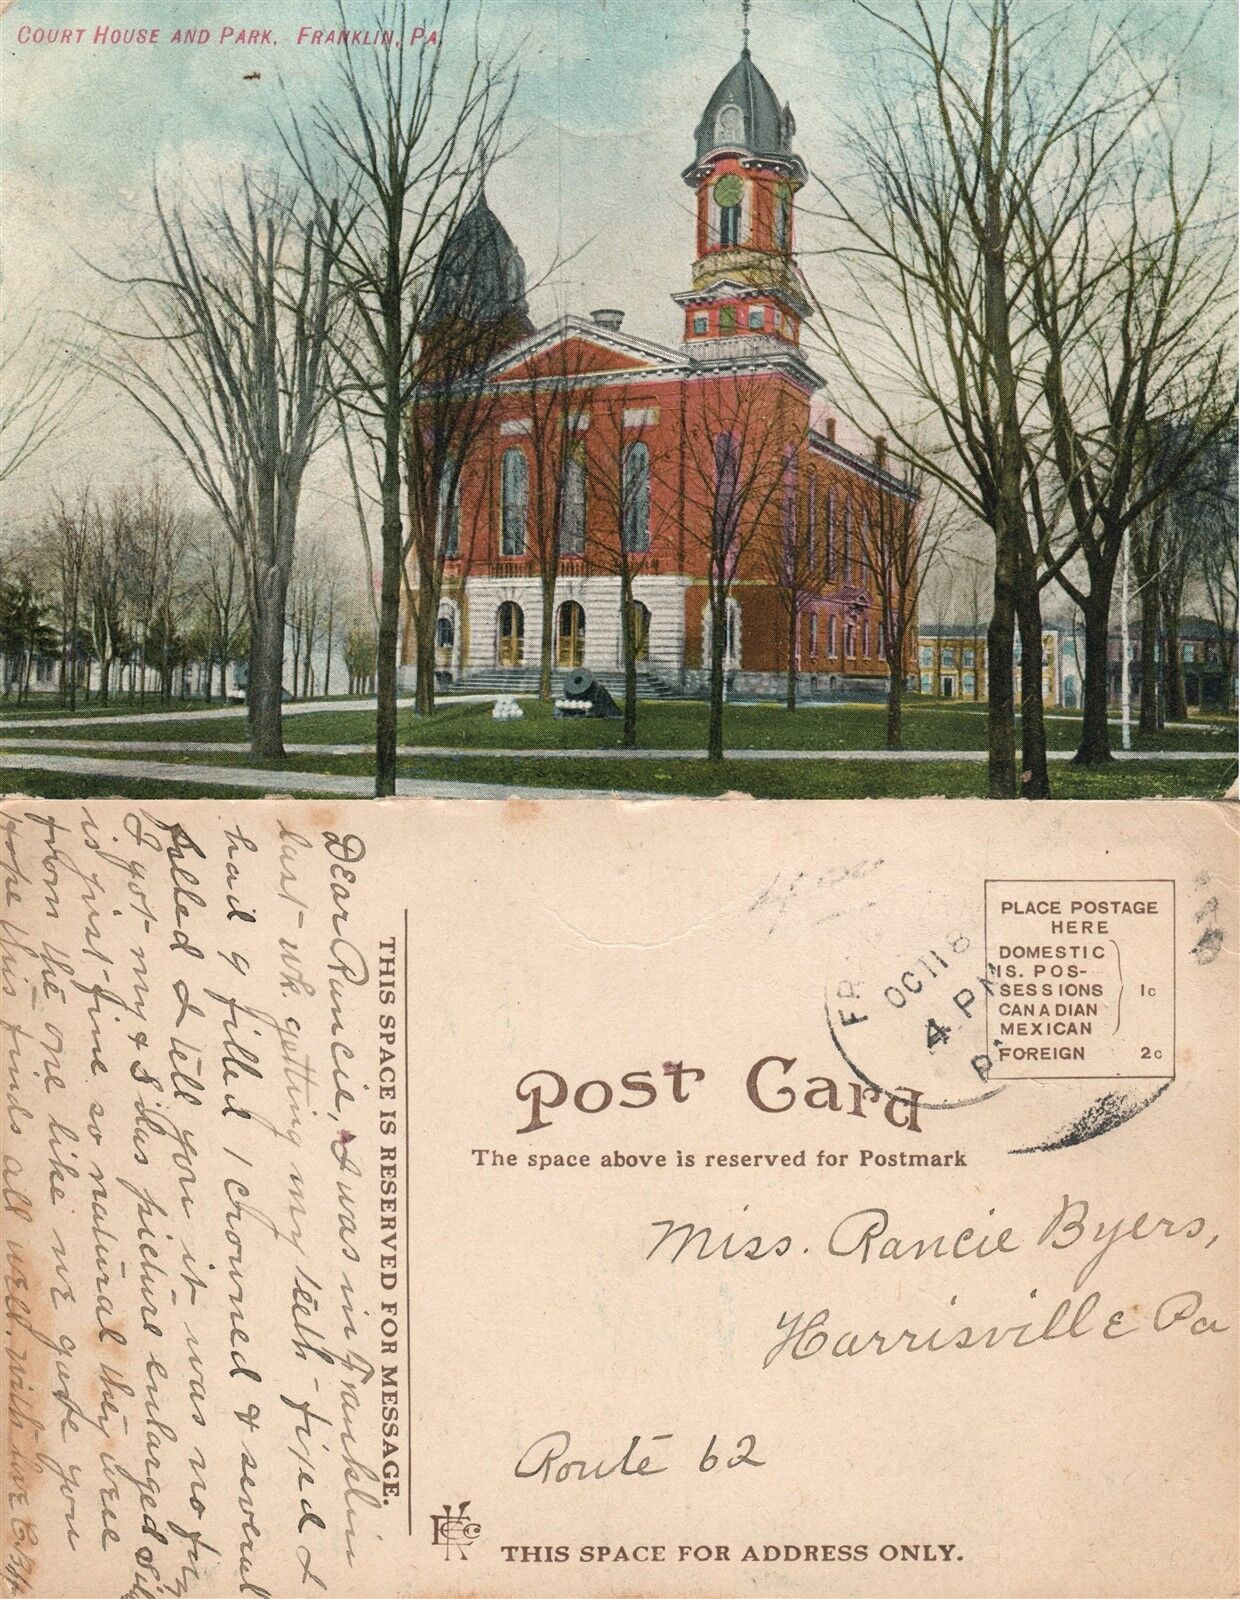 COURT HOUSE AND PARK, FRANKLIN, PA.
Dear Rancie, I was in Franklin
last wk. getting my teeth fixed I
had 9 filled 1 crowned & several
pulled I tell you it was no fun
I got my & Silas picture enlarged
is just fine so natural they were
from the one like we gave you
hope this finds all well. with love
THIS SPACE IS RESERVED FOR MESSAGE.
PLACE POSTAGE
HERE
DOMESTIC
IS. POS-
SESSIONS 1c
CANADIAN
MEXICAN
FOREIGN 2c
FR
OCT 18
4 PM
P
Post Card
The space above is reserved for Postmark
Miss. Rancie Byers,
Harrisville Pa
Route 62
THIS SPACE FOR ADDRESS ONLY.